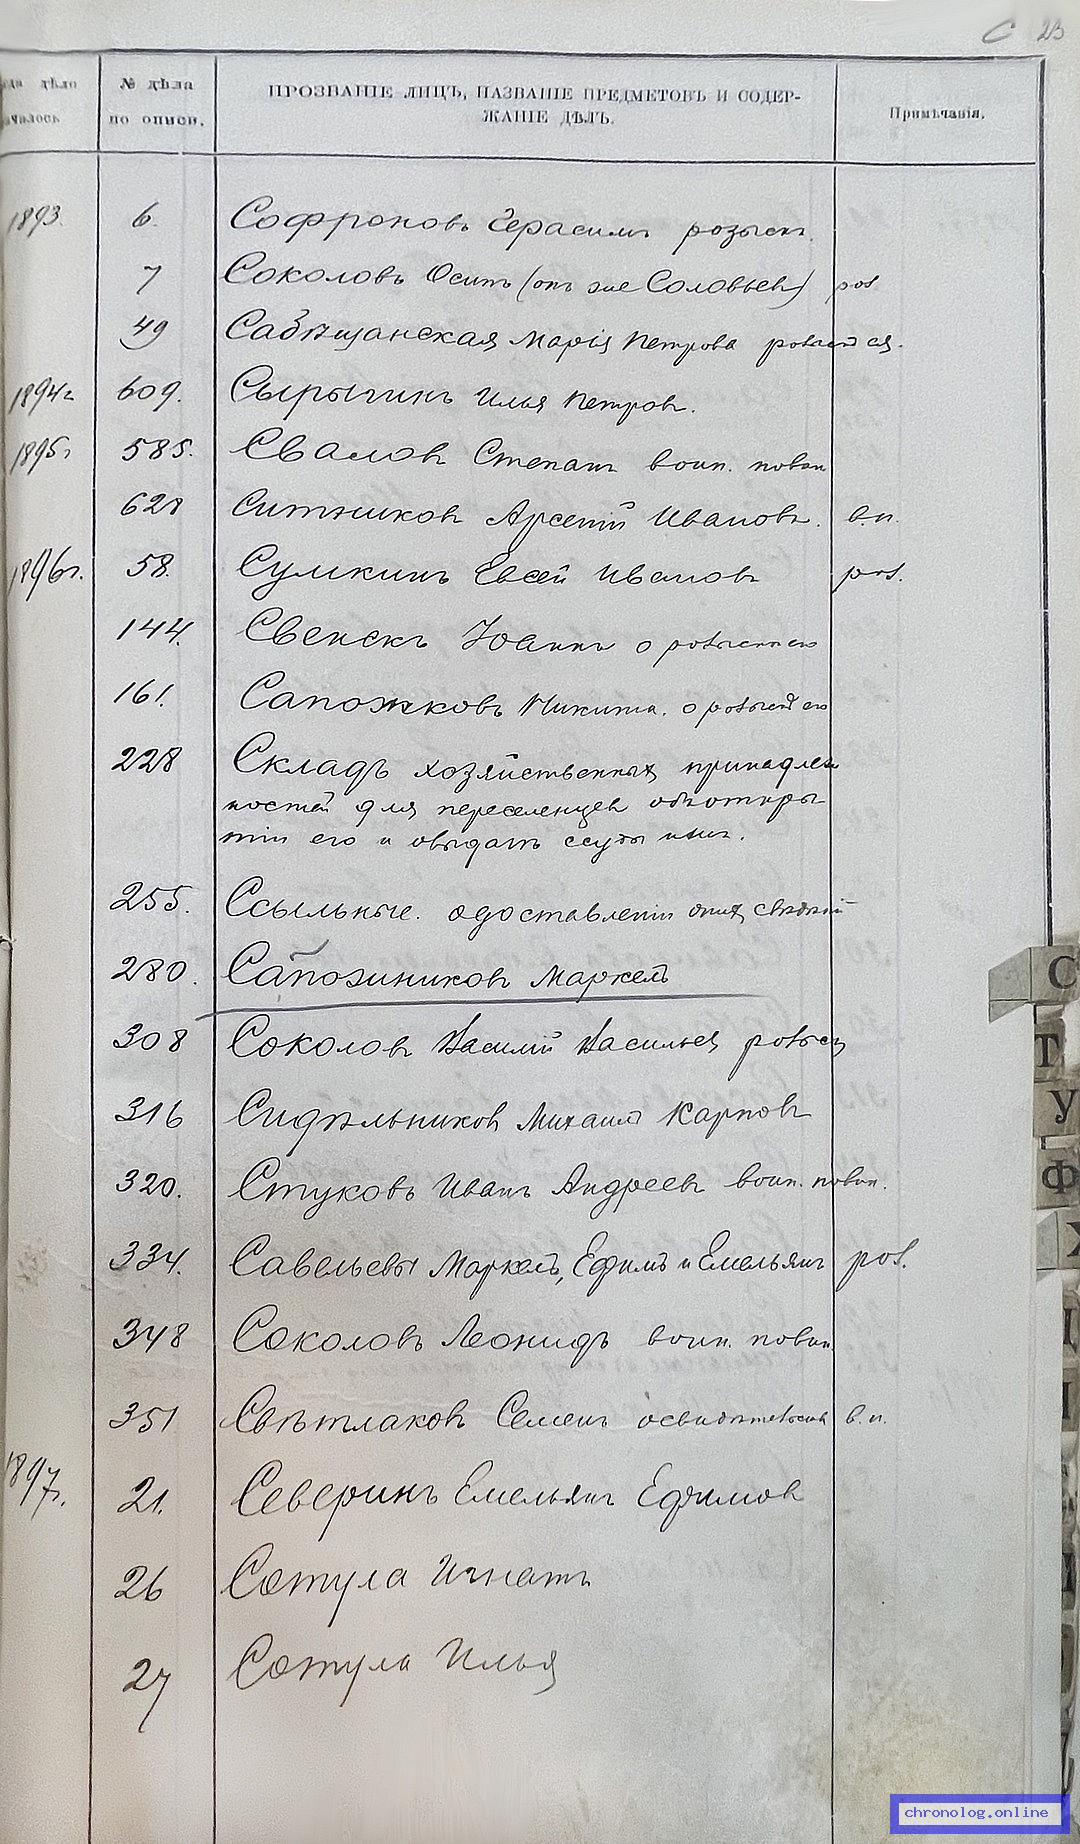 С 23
№ дѣла по описи.
ПРОЗВАНІЕ ЛИЦЪ, НАЗВАНІЕ ПРЕДМЕТОВЪ И СОДЕР-
ЖАНІЕ ДѢЛЪ.
Примѣчанія.
1893. 6. Софроновъ Герасимъ розыскъ.
7 Соколовъ Осипъ (онъ же Соловьев) роз
49 Марія Петрова
1894г 609. Сырыгинъ Илья Петровъ.
1895г 585. Свалов Степанъ воин. повин
628 Ситниковъ Арсеній Ивановъ. в.п.
1896г. 58. Сумкинъ Евсей Ивановъ роз.
144. Свенскъ Іоаннъ о
161. Сапожковъ Никита. о
228 Складъ хозяйственныхъ принадлеж
ностей для переселенцев объ откры
тіи его и о выдачѣ ссуды
255. Ссыльные. о доставленіи о нихъ свѣдѣній
280. Сапожниковъ Маркелъ
308 Соколовъ Василій Васильев розыск
316 Сидѣльников Михаилъ Карповъ
320. Стуковъ Иванъ Андреевъ воин. повин.
334. Савельевы Маркелъ, Ефимъ и Емельянъ роз.
348 Соколовъ Леонидъ воин. повин.
351 Свѣтлаковъ Семенъ в.п.
1897г. 21. Северинъ Емельянъ Ефимов
26 Сотула Игнатъ
27 Сотула Илья
С
Т
У
Ф
Х
chronolog.online